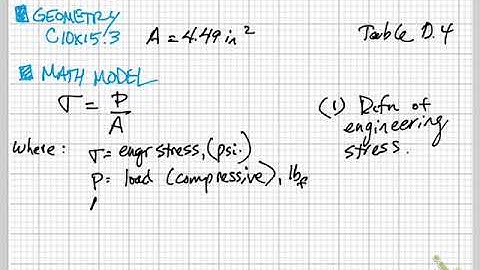 GEOMETRY
C10x15.3 A = 4.49 in² Table D.4
MATH MODEL
σ = P/A (1) Defn of
engineering
stress.
where: σ = engr stress, (psi.)
P = load (compressive), lbf